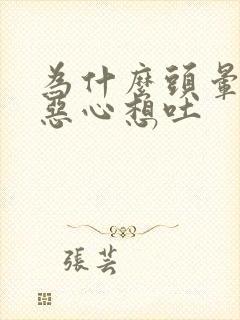 為什麼頭暈
惡心想吐
張芸